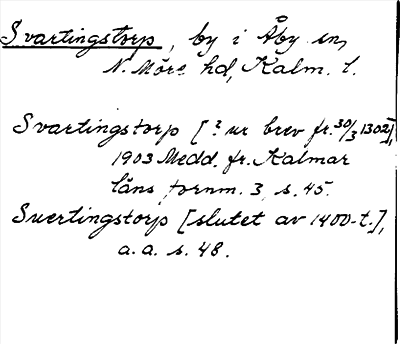 Svartingstorp, by i Åby sn,
N. Möre hd, Kalm. l.
Svartingstorp [? ur brev fr. 30/3 1302],
1903 Medd. fr. Kalmar
läns fornm. 3, s. 45.
Suertingstorp [slutet av 1400-t.],
a. a. s. 48.